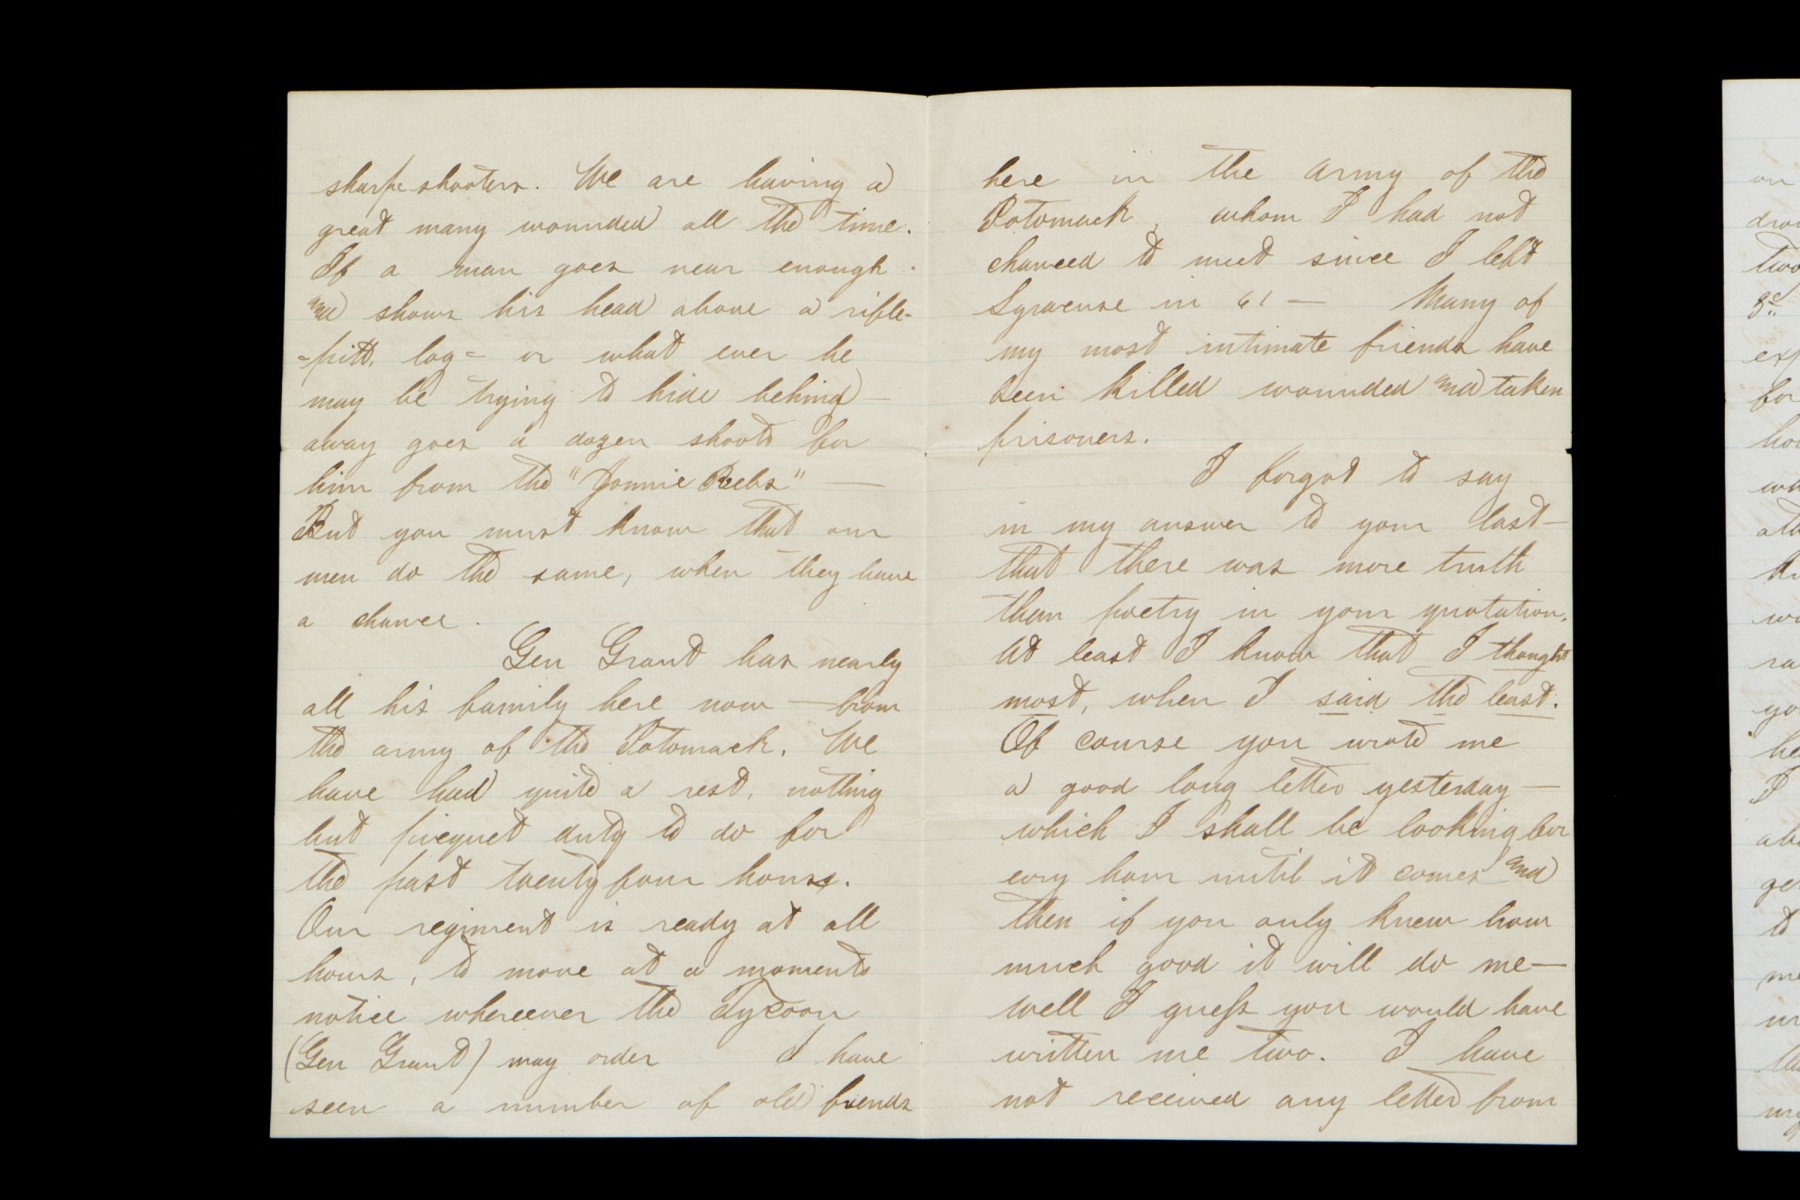 sharpe shooters. We are having a
great many wounded all the time.
If a man goes near enough
and shows his head above a rifle-
-pitt, log - or what ever he
may be trying to hide behind -
away goes a dozen shoots for
him from the "Jonnie Reebs" —
But you must know that our
men do the same, when they have
a chance.
Gen Grant has nearly
all his family here now — from
the army of the Potomack. We
have had quite a rest. nothing
but picquet duty to do for
the past twenty four hours.
Our regiment is ready at all
hours, to move at a moments
notice whereever the Tycoon
(Gen Grant) may order I have
seen a number of old friends
here in the army of the
Potomack, whom I had not
chanced to meet since I left
Syracuse in 61 — Many of
my most intimate friends have
been killed wounded and taken
prisoners.
I forgot to say
in my answer to your last —
that there was more truth
than poetry in your quotation.
At least I know that I thought
most, when I said the least.
Of course you wrote me
a good long letter yesterday —
which I shall be looking for
evry hour until it comes and
then if you only knew how
much good it will do me —
well I guess you would have
written me two. I have
not received any letter from
on
two
for
I
to